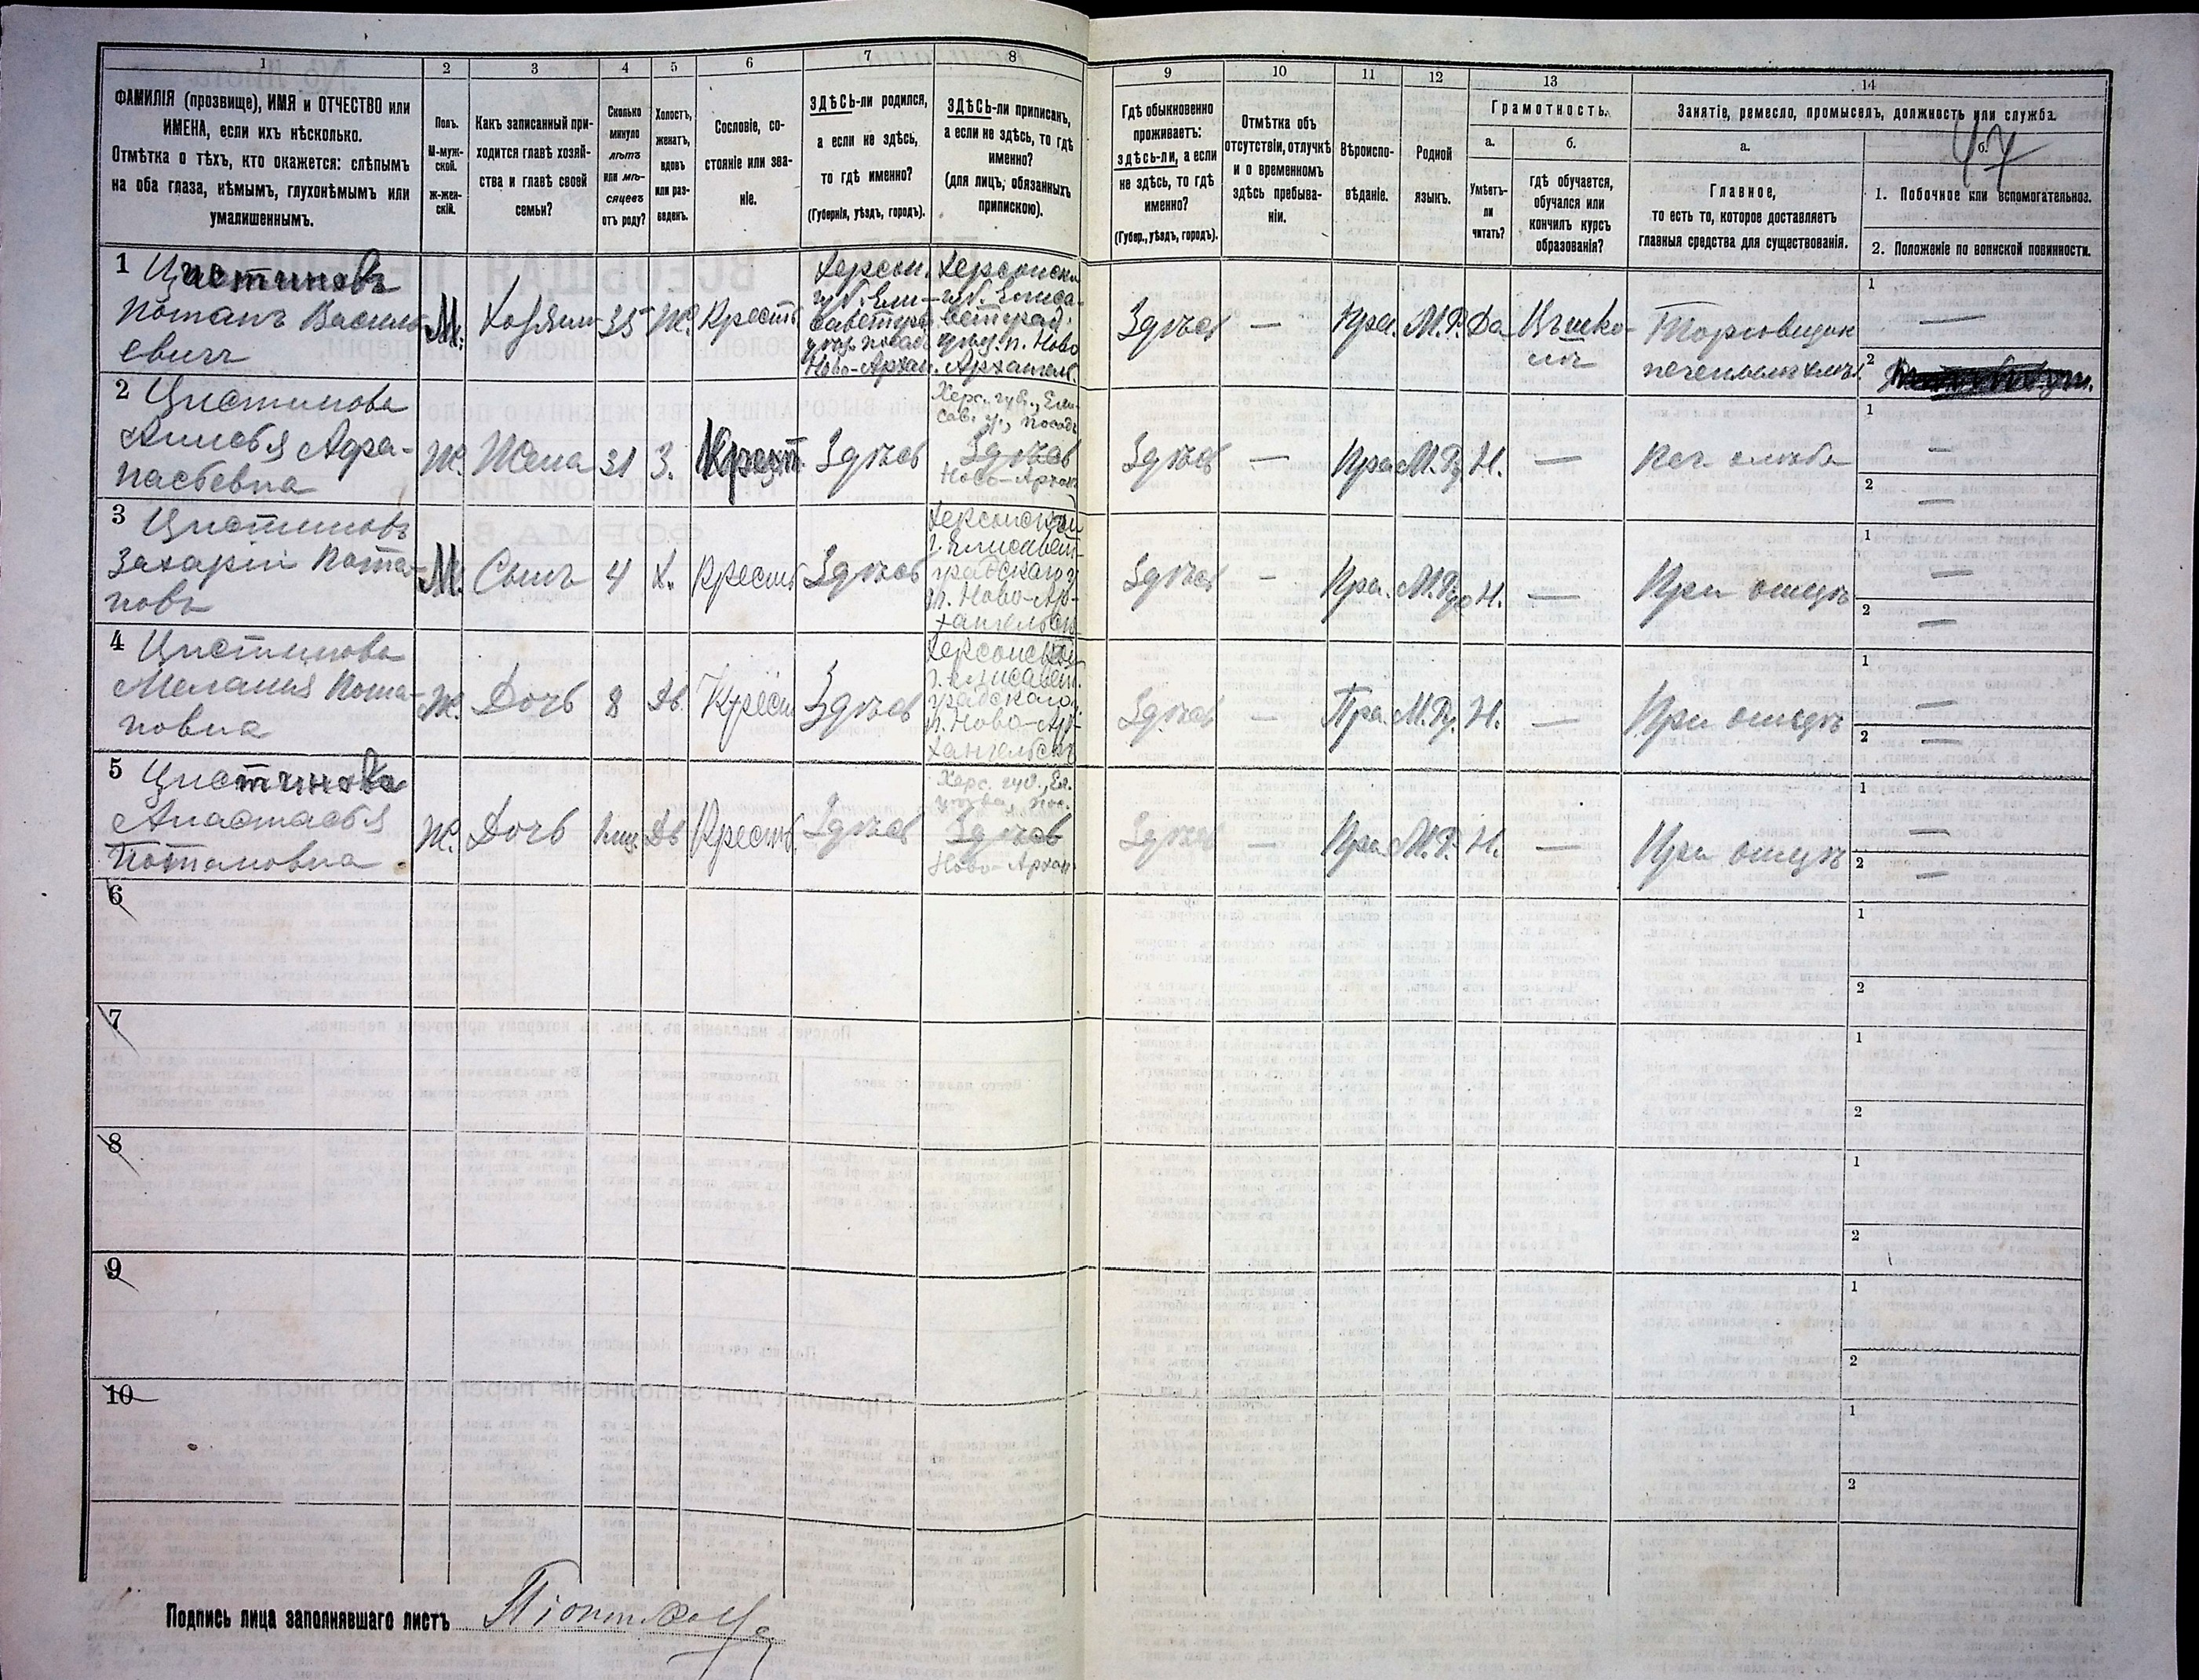 1 2 3 4 5 6 7 8 9 10 11 12 13 14
47
ФАМИЛІЯ (прозвище), ИМЯ и ОТЧЕСТВО или
ИМЕНА, если ихъ нѣсколько.
Отмѣтка о тѣхъ, кто окажется: слѣпымъ
на оба глаза, нѣмымъ, глухонѣмымъ или
умалишеннымъ.
Полъ.
М-муж-
ской.
ж-жен-
скій.
Какъ записанный при-
ходится главѣ хозяй-
ства и главѣ своей
семьи?
Сколько
минуло
лѣтъ
или мѣ-
сяцевъ
отъ роду?
Холостъ,
женатъ,
вдовъ
или раз-
веденъ.
Сословіе, со-
стояніе или зва-
ніе.
ЗДѢСЬ-ли родился,
а если не здѣсь,
то гдѣ именно?
(Губернія, уѣздъ, городъ).
ЗДѢСЬ-ли приписанъ,
а если не здѣсь, то гдѣ
именно?
(для лицъ, обязанныхъ
припискою).
Гдѣ обыкновенно
проживаетъ:
здѣсь-ли, а если
не здѣсь, то гдѣ
именно?
(Губер., уѣздъ, городъ).
Отмѣтка объ
отсутствіи, отлучкѣ
и о временномъ
здѣсь пребыва-
ніи.
Вѣроиспо-
вѣданіе.
Родной
языкъ.
Грамотность.
а.
Умѣетъ-
ли
читать?
б.
гдѣ обучается,
обучался или
кончилъ курсъ
образованія?
Занятіе, ремесло, промыселъ, должность или служба.
а.
Главное,
то есть то, которое доставляетъ
главныя средства для существованія.
б.
1. Побочное или вспомогательное.
2. Положеніе по воинской повинности.
1 Цистиновъ
Потапъ Василь-
евичъ
М.
Хозяин
35
Ж.
Крест
Херсон.
губ. Ели-
саветград
уѣзд. посад
Ново-Архан.
Херсонск
губ. Елиса-
ветград.
уѣзд. п. Ново
Архангел.
Здѣсь
—
Пра.
М.Р.
Да
Въ шко-
лѣ
Торговецъ
печенымъ хлѣб.
1 —
2
2 Цистинова
Анисья Афа-
насьевна
Ж.
Жена
31
З.
Крест.
Здѣсь
Херс. губ., Ели-
сав. у., посадъ
Здѣсь
Ново-Архан
Здѣсь
—
Пра
М.Р.
Н.
—
Печ. хлѣба
1 —
2 —
3 Цистиновъ
Захарій Пота-
повъ
М.
Сынъ
4
Х.
Крест
Здѣсь
Херсонской
г. Елисавет-
градскаго у
п. Ново-Ар-
хангельск
Здѣсь
—
Пра.
М.Р.
Н.
—
При отцѣ
1 —
2 —
4 Цистинова
Мелания Пота-
повна
Ж.
Дочь
8
Дѣ.
Крест
Здѣсь
Херсонской
г. Елисавет.
градскаго
п. Ново-Ар-
хангельск
Здѣсь
—
Пра.
М.Р.
Н.
—
При отцѣ
1 —
2 —
5 Цистинова
Анастасья
Потаповна
Ж.
Дочь
Дѣ
Крест
Здѣсь
Херс. губ., Ел.
Здѣсь
Ново-Архан
Здѣсь
—
Пра
М.Р.
Н.
—
При отцѣ
1 —
2 —
6
1
2
7
1
2
8
1
2
9
1
2
10
1
2
Подпись лица заполнявшаго листъ